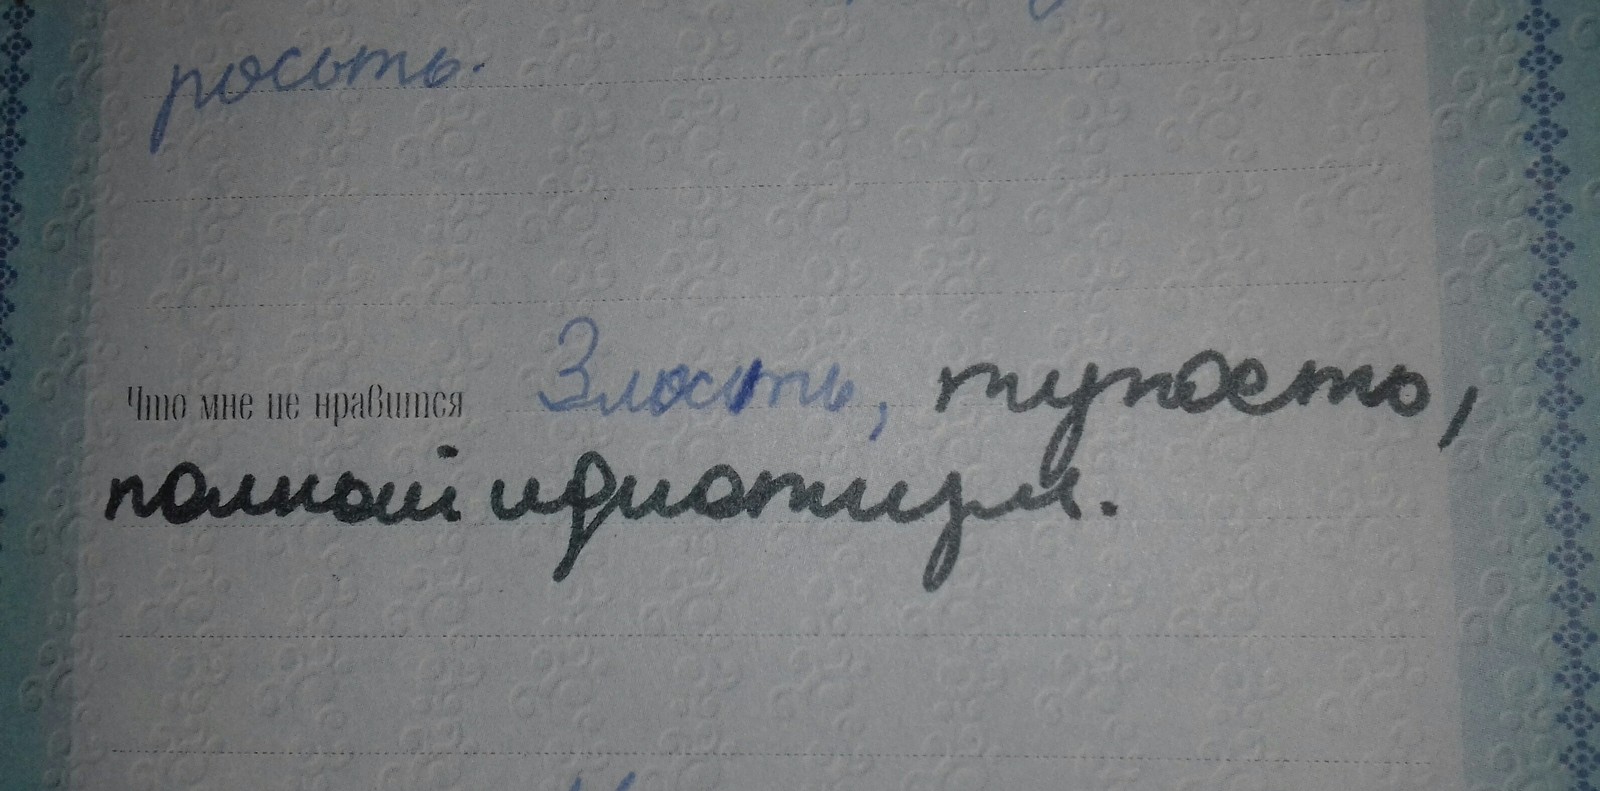 росоть.
Что мне не нравится Злость, тупость,
полной идиотизм.